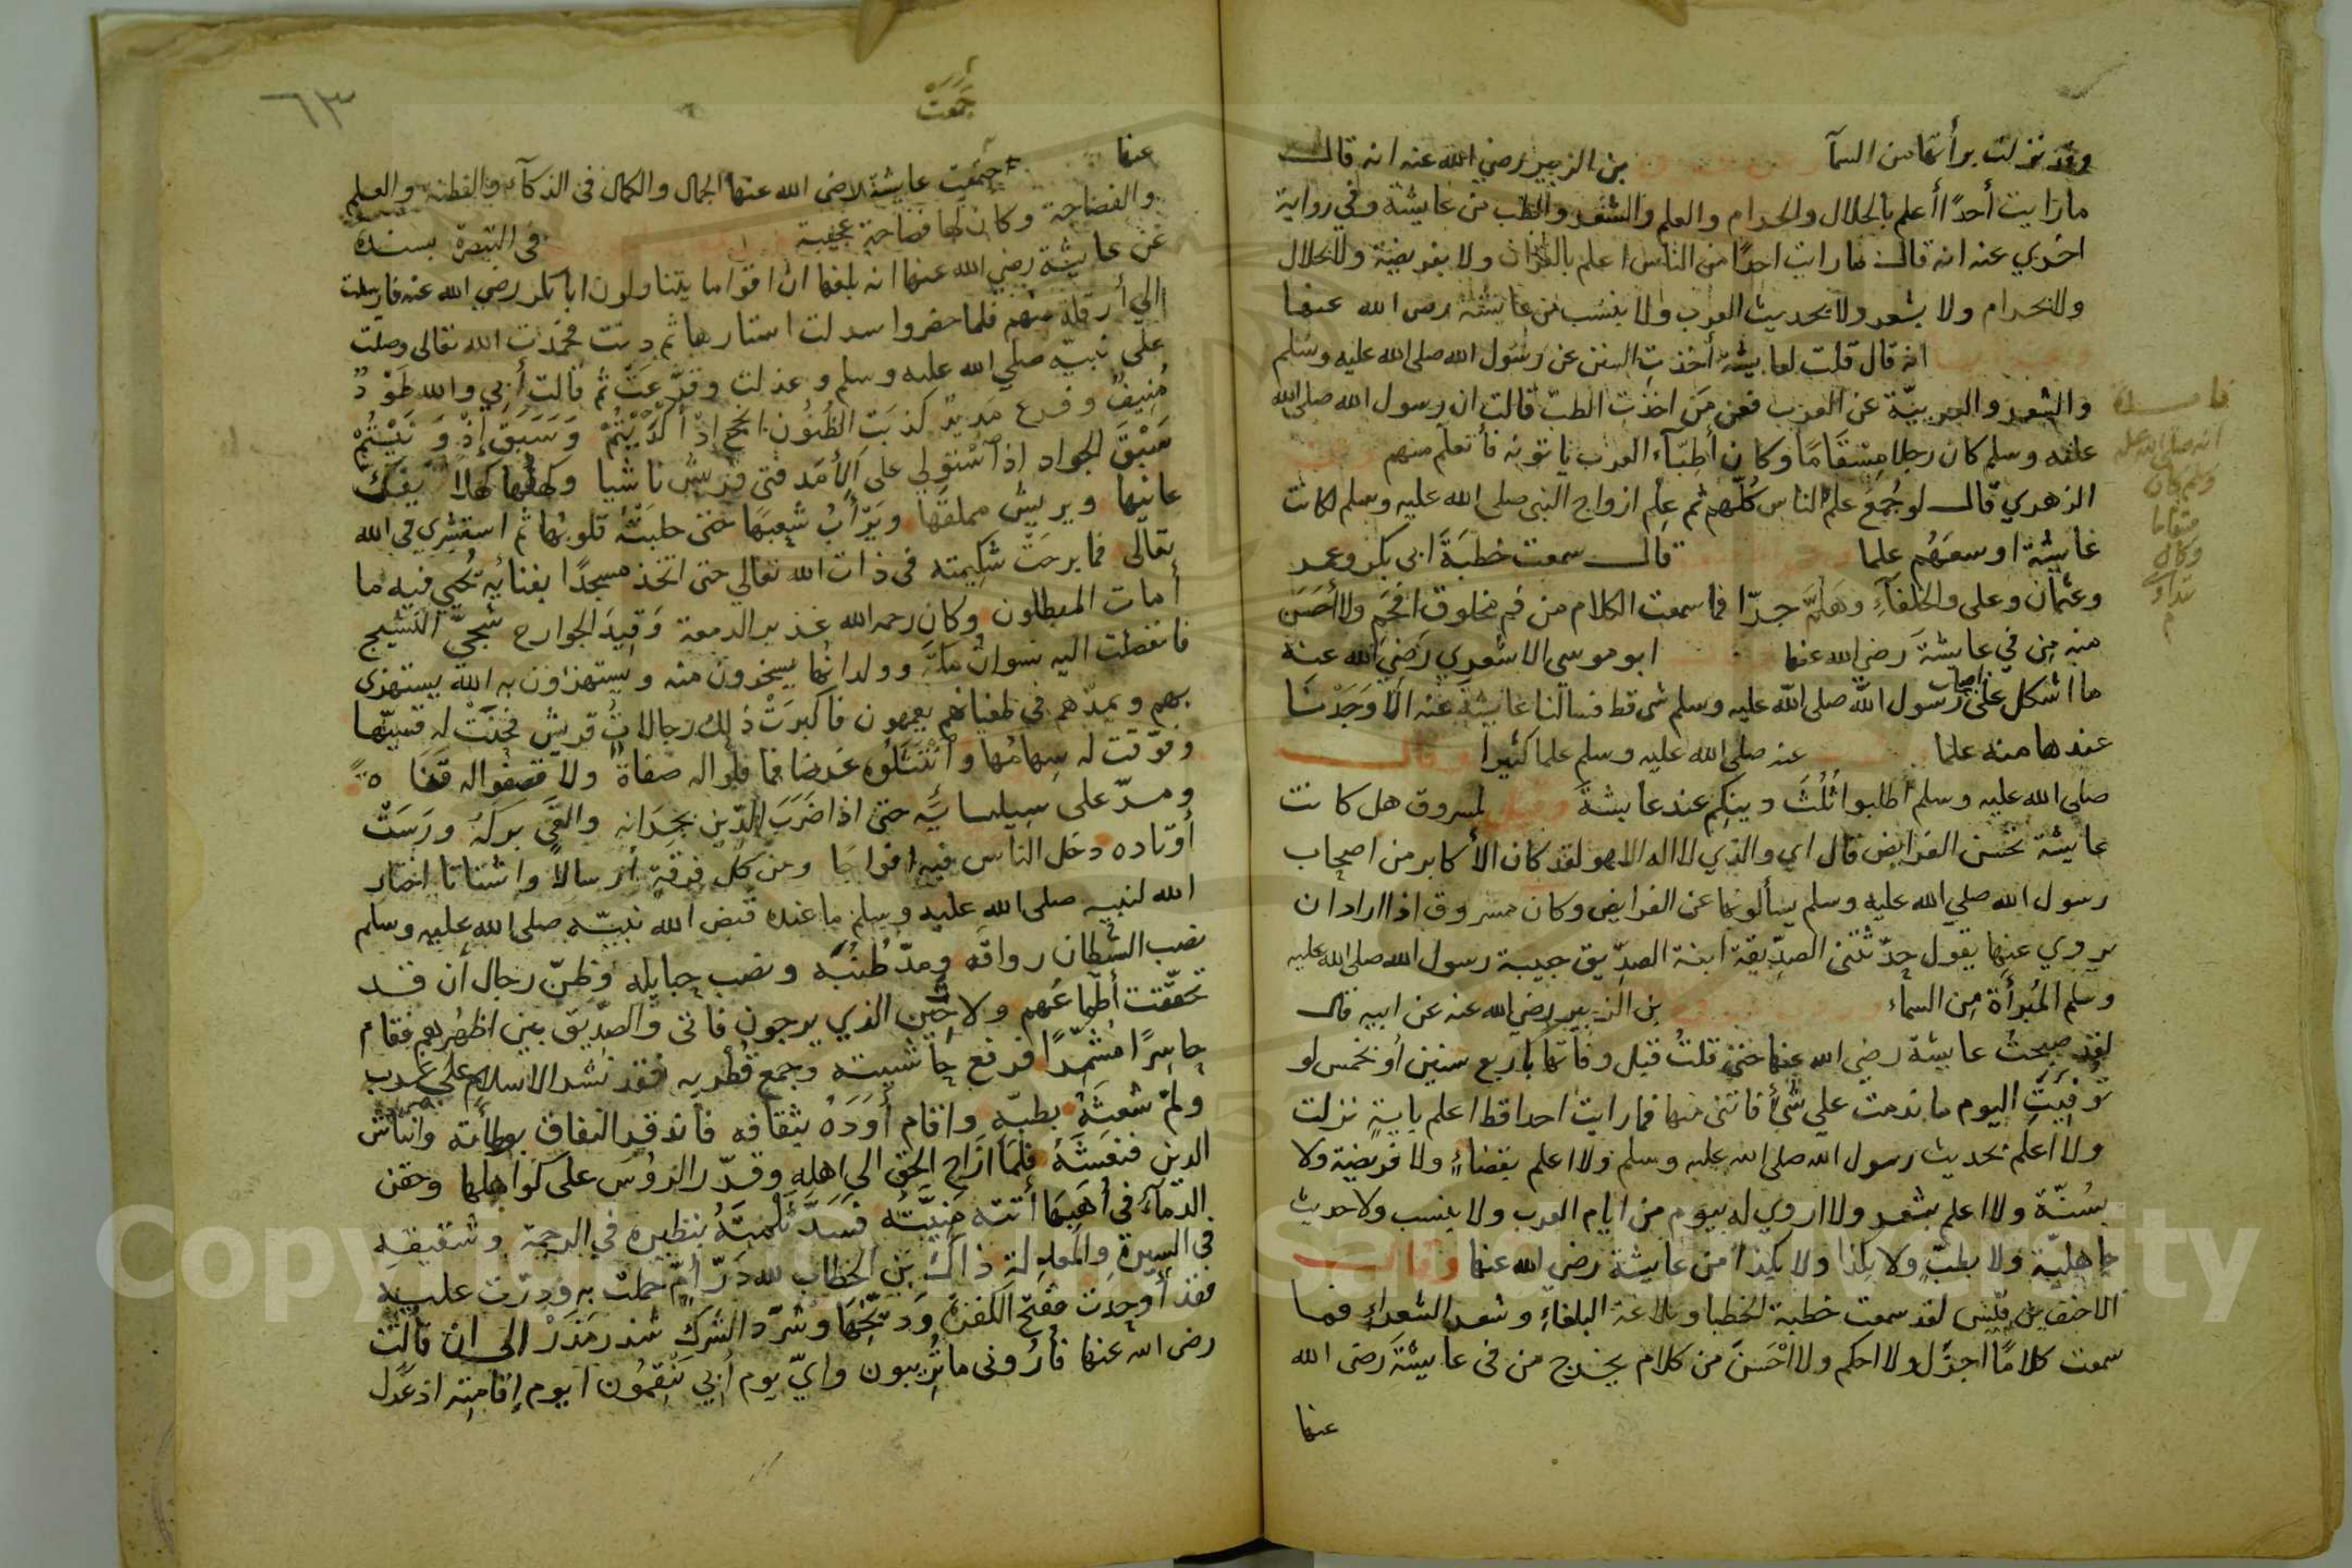 وقد نزلت برأتها من السمآ بن الزبير رضي الله عنه انه قال
ما رايت أحدًا أعلم بالحلال والحرام والعلم والشعر والطب من عايشة وفي رواية
اخري عنه انه قال ما رايت احدًا من الناس اعلم بالقرآن ولا بفريضة ولا بحلال
ولا بحرام ولا بشعر ولا بحديث العرب ولا بنسب من عايشة رضى الله عنها
انه قال قلت لعايشة أخذتِ السنن عن رسول الله صلى الله عليه وسلم
والشعر والعربيّة عن العرب فعن مَن اخذتِ الطبّ قالت ان رسول الله صلى الله
عليه وسلم كان رجلا مِسْقَامًا وكان أطِبّآء العرب ياتونه فأتعلم منهم
الزهري قال لو جُمِعَ علمُ الناس كُلّهم ثم علم ازواج النبى صلى الله عليه وسلم لكانت
عايشة اوسعَهُم علما قال سمعت خطبَةَ ابى بكر وعمر
وعثمان وعلى والخلفآءِ وهَلُمَّ جرّا فما سمعت الكلام من فم مخلوق افخَم ولا أحْسَن
منه مِن في عايشةَ رضى الله عنها ابو موسي الاشعري رَضي الله عنه
ما اشكل على اصحاب رسول الله صلى الله عليه وسلم شى قط فسالنا عايشة عنه الا وَجَدْنا
عندها منه علما عنه صلى الله عليه وسلم علما كثيرا وقال
صلى الله عليه وسلم اطلبوا ثُلُثَ دينكم عند عايشةَ وقيل لمسروق هل كانت
عايشة تحسن الفرايض قال اي والذي لا اله الا هو لقد كان الأكابر من اصحاب
رسول الله صلي الله عليه وسلم يسألونها عن الفرايض وكان مسروق اذا اراد ان
يروي عنها يقول حدّثتنى الصدِّيقة ابنة الصدِّيق حبيبة رسول الله صلى الله عليه
وسلم المُبرأة مِن السماء بن الزبير رضي الله عنه عن ابيه قال
لقد صحبتُ عايشة رضى الله عنها حتى قلتُ قبل وفاتها باربع سنين أو بخمس لو
تُوفّيَتِ اليوم ما ندمت علي شئ فاتنى منها فما رايت احدا قط اعلم بايةٍ نزلت
ولا اعلم بحديث رسول الله صلى الله عليه وسلم ولا اعلم بقضاءٍ ولا فريضة ولا
بسُنّة ولا اعلم بشعر ولا اروي له بيوم من ايام العرب ولا بنسب ولا حديث
جاهليّة ولا بطبّ ولا بكذا ولا بكذا من عايشة رضى الله عنها وقال
الاحنف بن قيس لقد سمعت خطبة الخطبا وبلاغة البلغاءِ وشعر الشعراءِ فما
سمعت كلامًا اجزل ولا احكم ولا احْسَنَ من كلام يخرج من فى عايشةَ رضى الله
عنها
انه صلى الله عليه
وسلم كان
مسقاما
وكان
جَمَعَتْ
٦٣
عنها جَمَعَت عايشة رضى الله عنها الجمال والكمال فى الذكآء والفطنة والعلم
والفصاحة وكان لها فصاحة عجيبة فى التبصرة بسنده
عن عايشة رضي الله عنها انه بلغها ان اقواما يتناولون ابا بكر رضى الله عنه فارسلت
الي أزفلة منهم فلما حضروا سدلت استارها ثم دنت فحمدت الله تعالى وصلت
على نبيّه صلي الله عليه وسلم وعذلت وقرّعَت ثم قالت أبي والله طَوْدٌ
مُنِيفٌ وفرع مَديدٌ كذبَت الظُنُون انجح اذ أكْدَيْتُمْ وَسَبَقَ إذْ وَنَيْتُمْ
سَبْقَ الجواد إذا اسْتولي على الأمَد فتى قريش ناشيا وكهفُها كهلا يَفك
عانيها ويريش مملقها ويَرْأبُ شعبَها حتى حلبَتْهُ قلوبُها ثم استشري في الله
تعالى فما برحَتْ شكِيمته فى ذات الله تعالي حتى اتخذ مسجدًا بفنائِه يُحيي فيه ما
أمات المبطلون وكان رحمه الله غزير الدمعة وَقِيدَ الجوارح شَجيّ النشيج
فانقضت اليه نسوانُ مكة وولدانُها يسخرون منه ويستهزؤن به الله يستهزى
بهم ويمدّهم في طغيانهم يعمهون فاكبرَتْ ذلك رجالات قريش فحنَتْ له قسيّها
وفوّقت له سِهامُها وامْتَثَلُوه غرضا فما فلّوا له صفاةً ولا قصفوا له قنَاةً
ومرّ على سِيسَايه حتى اذا ضَرَبَ الدّين بجِرَانِه والقى بَركَهُ ورَسَتْ
أوتاده دخل الناس فيه افواجًا ومن كل فرقة أرسالًا واشتاتا اختار
الله لنبيه صلى الله عليه وسلم ما عنده قبض الله نبيّه صلى الله عليه وسلم
نصب الشيطان رواقه ومدّ طُنُبَه ونصب حبايله وظنّ رجال أن قد
تحقّقت أطماعُهم ولا حين الذي يرجون فانى والصدّيق بين اظهرهم فقام
حاسرًا مُشمِّرًا فرفع حاشيته وجمع قُطْرَيه فقد نشر الاسلام على غرب
ولمّ شعثَهُ بطبّه واقام أوَدَهُ بثقافه فانذقر النفاق بوطأته وانتاش
الدين فنعَشَهُ فلما أزاح الحق الى اهله وقدّر الرؤسَ على كواهلها وحقن
الدمآء فى أُهُبِهَا أتته مَنِيَّتُه فسَدَّ ثُلمتَهُ بنظيره في الرحمة وشقيقِه
في السيرة والمعدِلة ذاك بن الخطاب لله دَرّ أمّ حملت به ودرّت عليه
فقد أوحدت ففنّح الكفرة وَدَيّخها وشرّد الشرك شذر مَذَرْ الى ان قالت
رضى الله عنها فأرُونى ما تُريبون وايّ يوم أبي تَنقِمُون ايوم إقامتِه اذ عَدَل